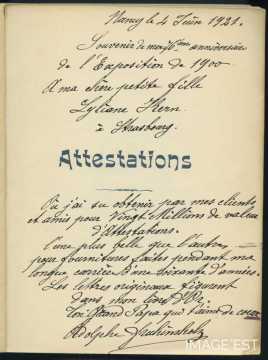 Nancy le 4 Juin 1921.
Souvenir de mon 76ème anniversaire
de l'Exposition de 1900
A ma chère petite fille
Lyliane Kern
à Strasbourg.
Attestations
Où j'ai su obtenir par mes clients
et amis pour Vingt Millions de valeur
d'Attestations.
l'une plus belle que l'autre
pour fournitures faites pendant ma
longue carrière d'une soixante d'années.
Les lettres originaux figurent
dans mon livre d'Or.
Ton Grand Papa qui t'aime de coeur
Adolphe
IMAGE'EST